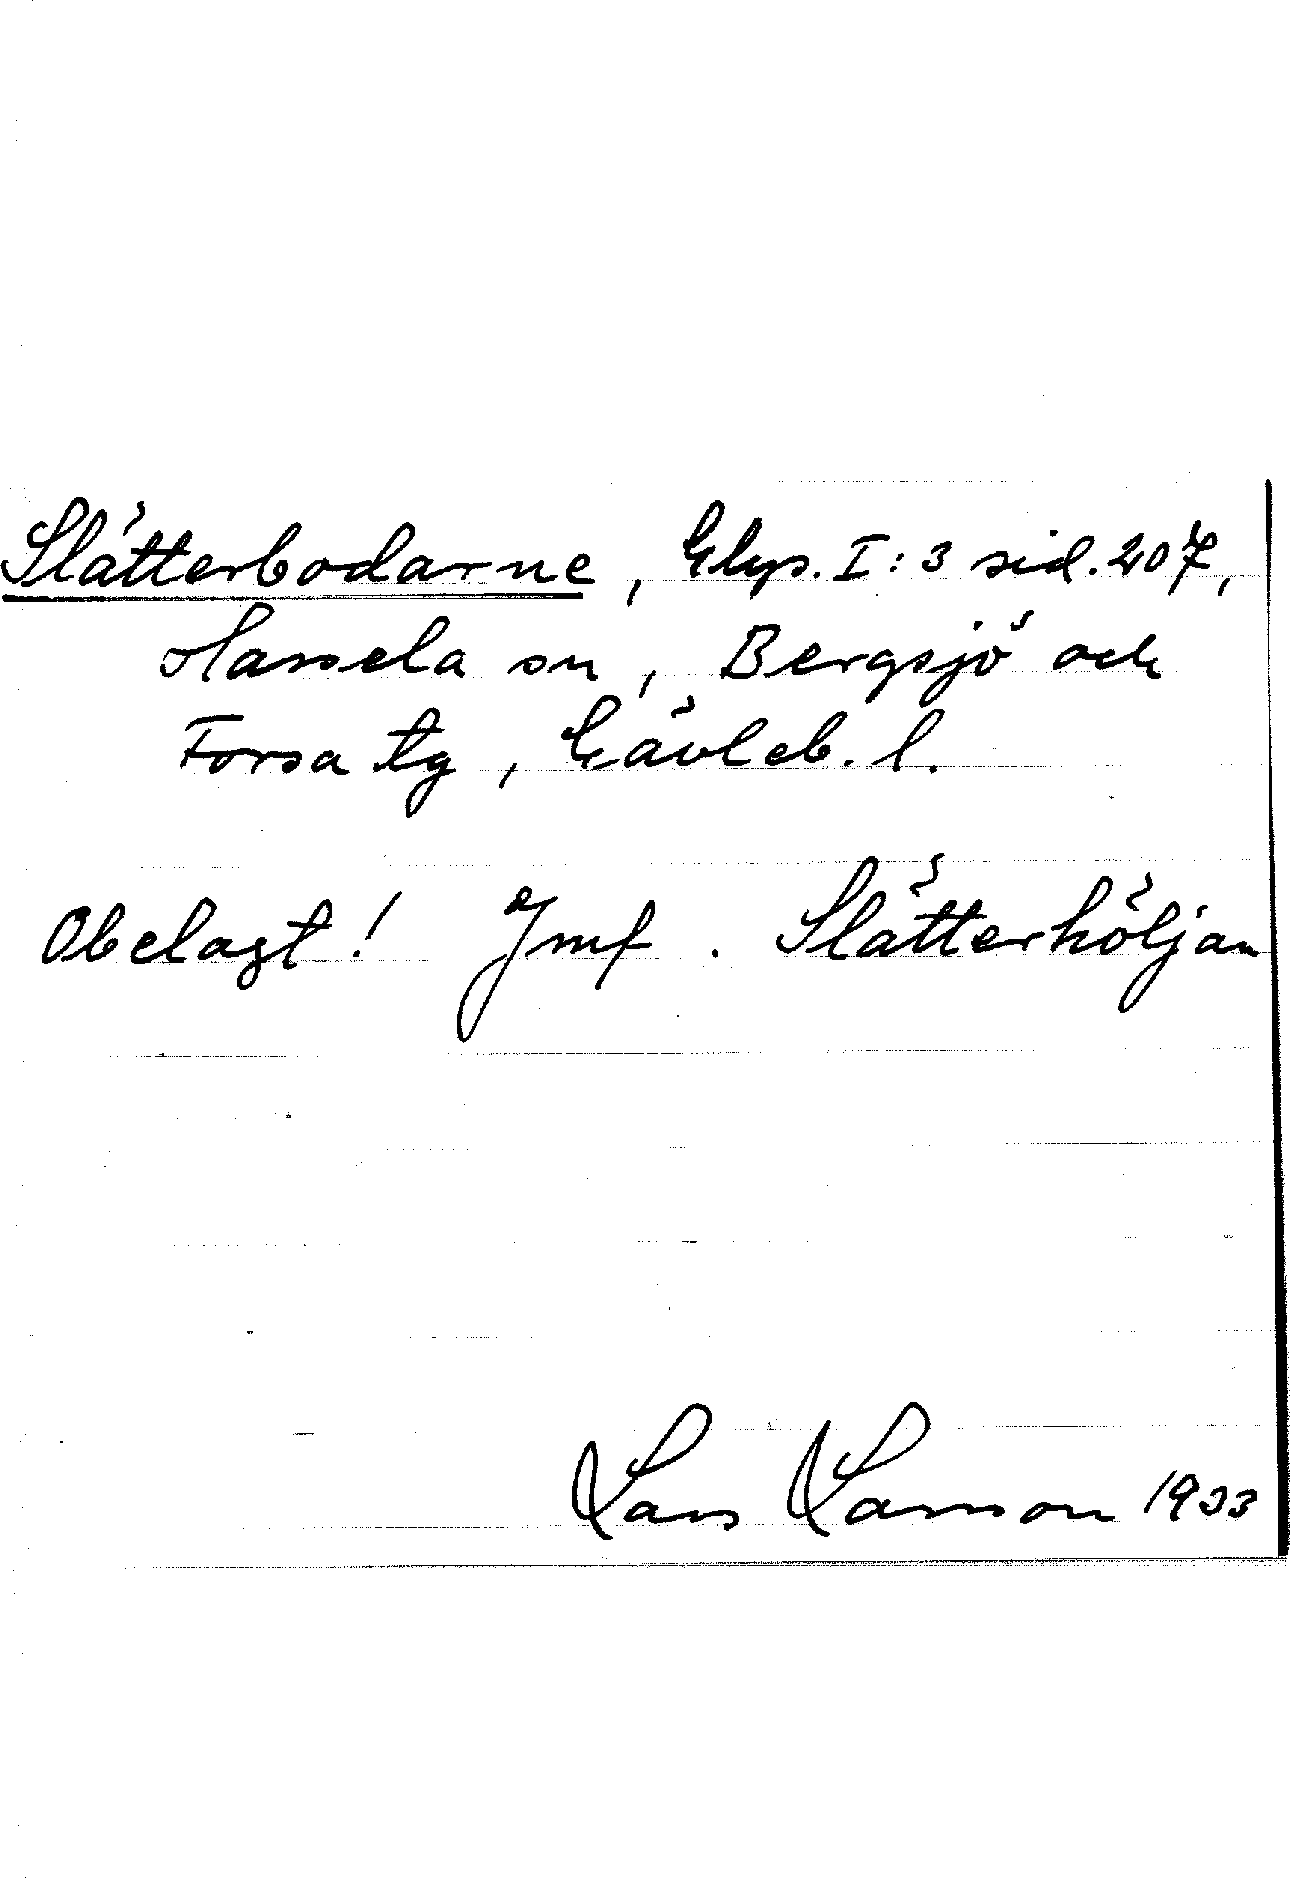 Slätterbodarne, Glys. I:3 sid. 207,
Hassela sn, Bergsjö och
Forsa tg, Gävleb. l.
Obelagt! Jmf. Slätterhöljan
Lars Larsson 1933